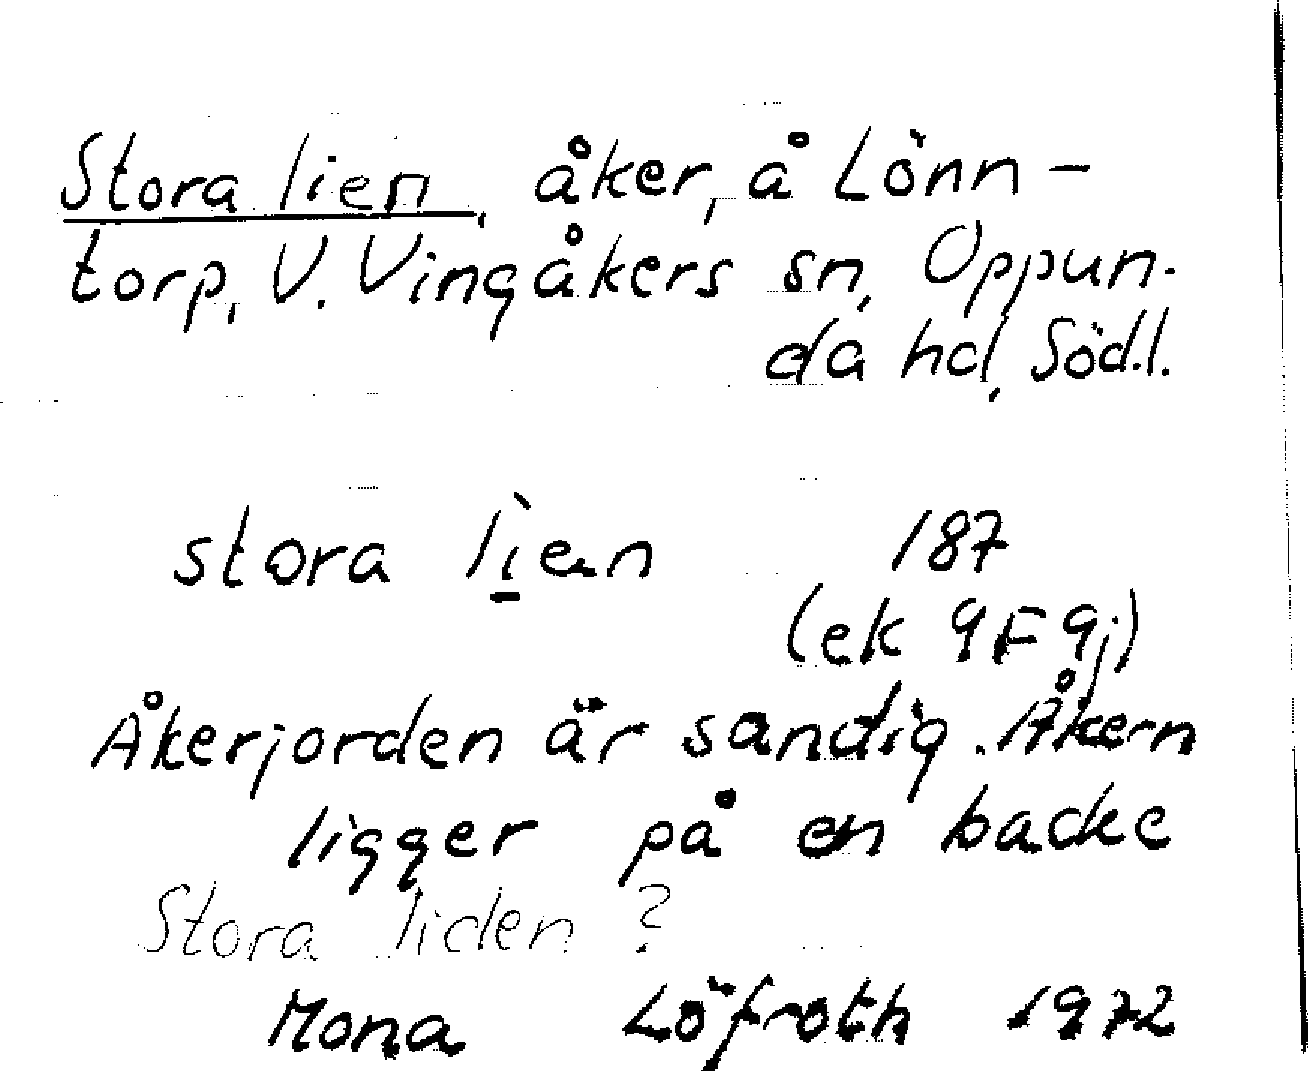 Stora lien, åker, å Lönn-
torp, V. Vingåkers sn, Oppun-
da hd, Söd.l.
stora lìen 187
(ek 9F 9j)
Åkerjorden är sandig. Åkern
ligger på en backe
Stora liden ?
Mona Löfroth 1972